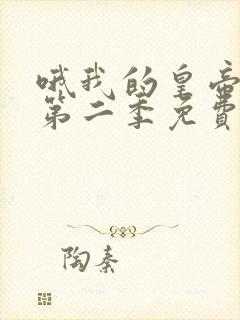 哦我的皇帝
第二季免费
陶秦